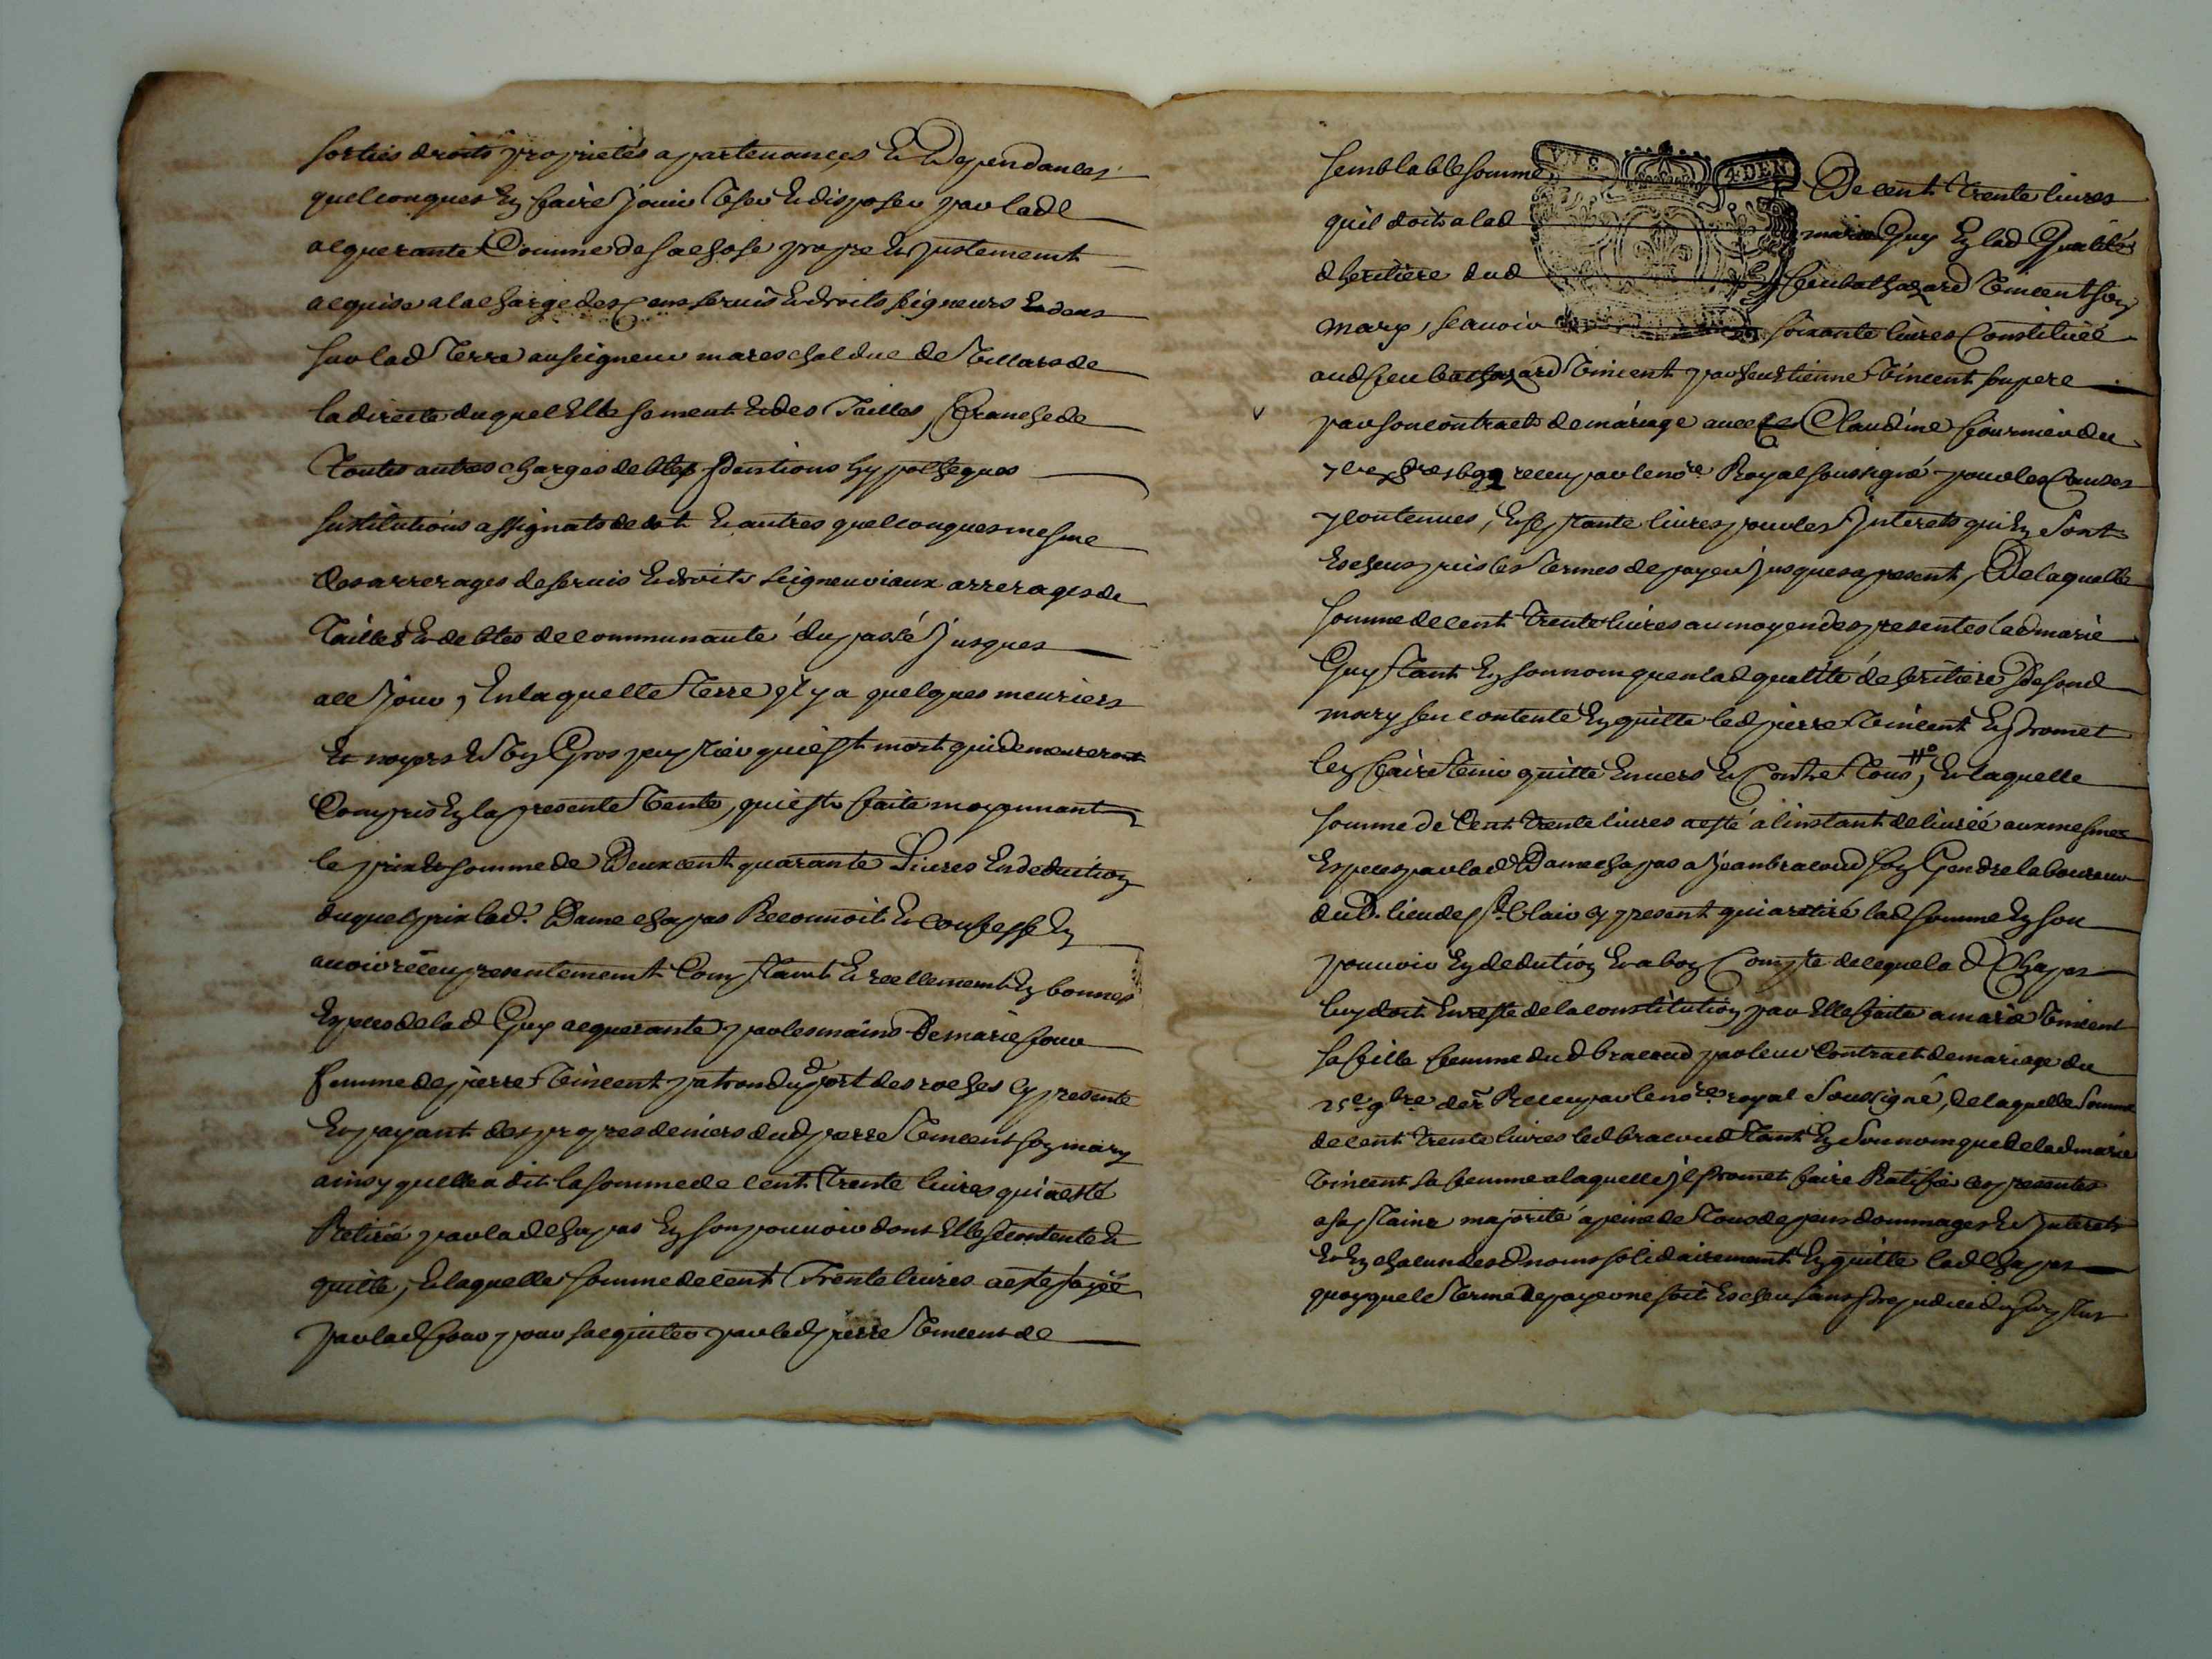 sorties droits proprietés apartenances Et Dependances
quelconques En faire jouir User Et disposer par lad
acquerante Comme de sa chose propre Et justement
acquise a la charge des Cens servis Et droits seigneurs Eu dans
sur lad Terre au seigneur mareschal duc de Villars de
la directe duquel Elle se ment Et des Tailles, franche de
Toutes autres charges debtes pantions hypotheques
sustitutions assignats de dot Et autres quelconques mesme
Des arrerages de servis Et droits seigneuriaux arrerages de
Tailles Et debtes de communauté du passé jusques
a ce jour, En laquelle Terre il y a quelques meuriers
Et noyers Et Un Gros peuplier qui est mort qui demeureront
Compris En la presente Vente, qui est faite moyennant
le prix Et somme de Deux cent quarante Livres En deduction
duquel prix lad. Dame chapas Reconnoit Et Confesse En
avoir receu presentement Comptant Et reellement En bonnes
Especes de lad Guy acquerante par les mains De marie four
femme de pierre Vincent patron dud port des roches Cy presente
Et payant des propres deniers dud pierre Vincent son mary
ainsy quelle a dit la somme de Cent Trente livres qui a esté
Retirée par lad chapas En son pouvoir dont Elle se contente Et
quitte, Et laquelle somme de cent Trente livres a esté payée
par lad four pour sacquitter par led pierre Vincent de
semblable somme De cent Trente livres
quil doit a lad marie Guy En lad Qualité
dheritiere dud feu balthazard Vincent son
mary, scavoir soixante livres Constituée
aud feu balthazard Vincent par feu Etienne Vincent son pere
par son contract de mariage avec Claudine fournier du
receu par le nore Royal soussigné pour les Causes
y contenues, Et septante livres pour les Interets qui En sont
Escheus puis les Termes de payer jusques a present, De laquelle
somme de cent Trente livres au moyen des presentes lad marie
Guy Tant En son nom quen lad qualité de heritiere De sond
mary sen contente En quitte led pierre Vincent Et promet
len faire Tenir quitte Envers Et Contre Tous, Et laquelle
somme de Cent Trente livres a esté a linstant delivrée aux mesmes
Especes par lad Dame chapas a jean bracoud son Gendre laboureur
dud. lieu de St Clair cy present qui a retiré lad somme En son
pouvoir En deduction Et a bon Compte de ce que lad Chapas
luy doit En reste de la constitution par Elle faite a marie Vincent
sa fille femme dud bracoud par leur Contract de mariage du
25e 9bre der Receu par le nore royal soussigné, de laquelle somme
de cent Trente livres led bracoud Tant En son nom que de lad marie
Vincent sa femme a laquelle il promet faire Ratifier ces presentes
a sa plaine majorité a peine de Tous depens dommages Et Interets
Et En chacun desd noms solidairement En quitte lad chapas
quoyque le Terme de payer ne soit Escheu sans prejudice du surplus